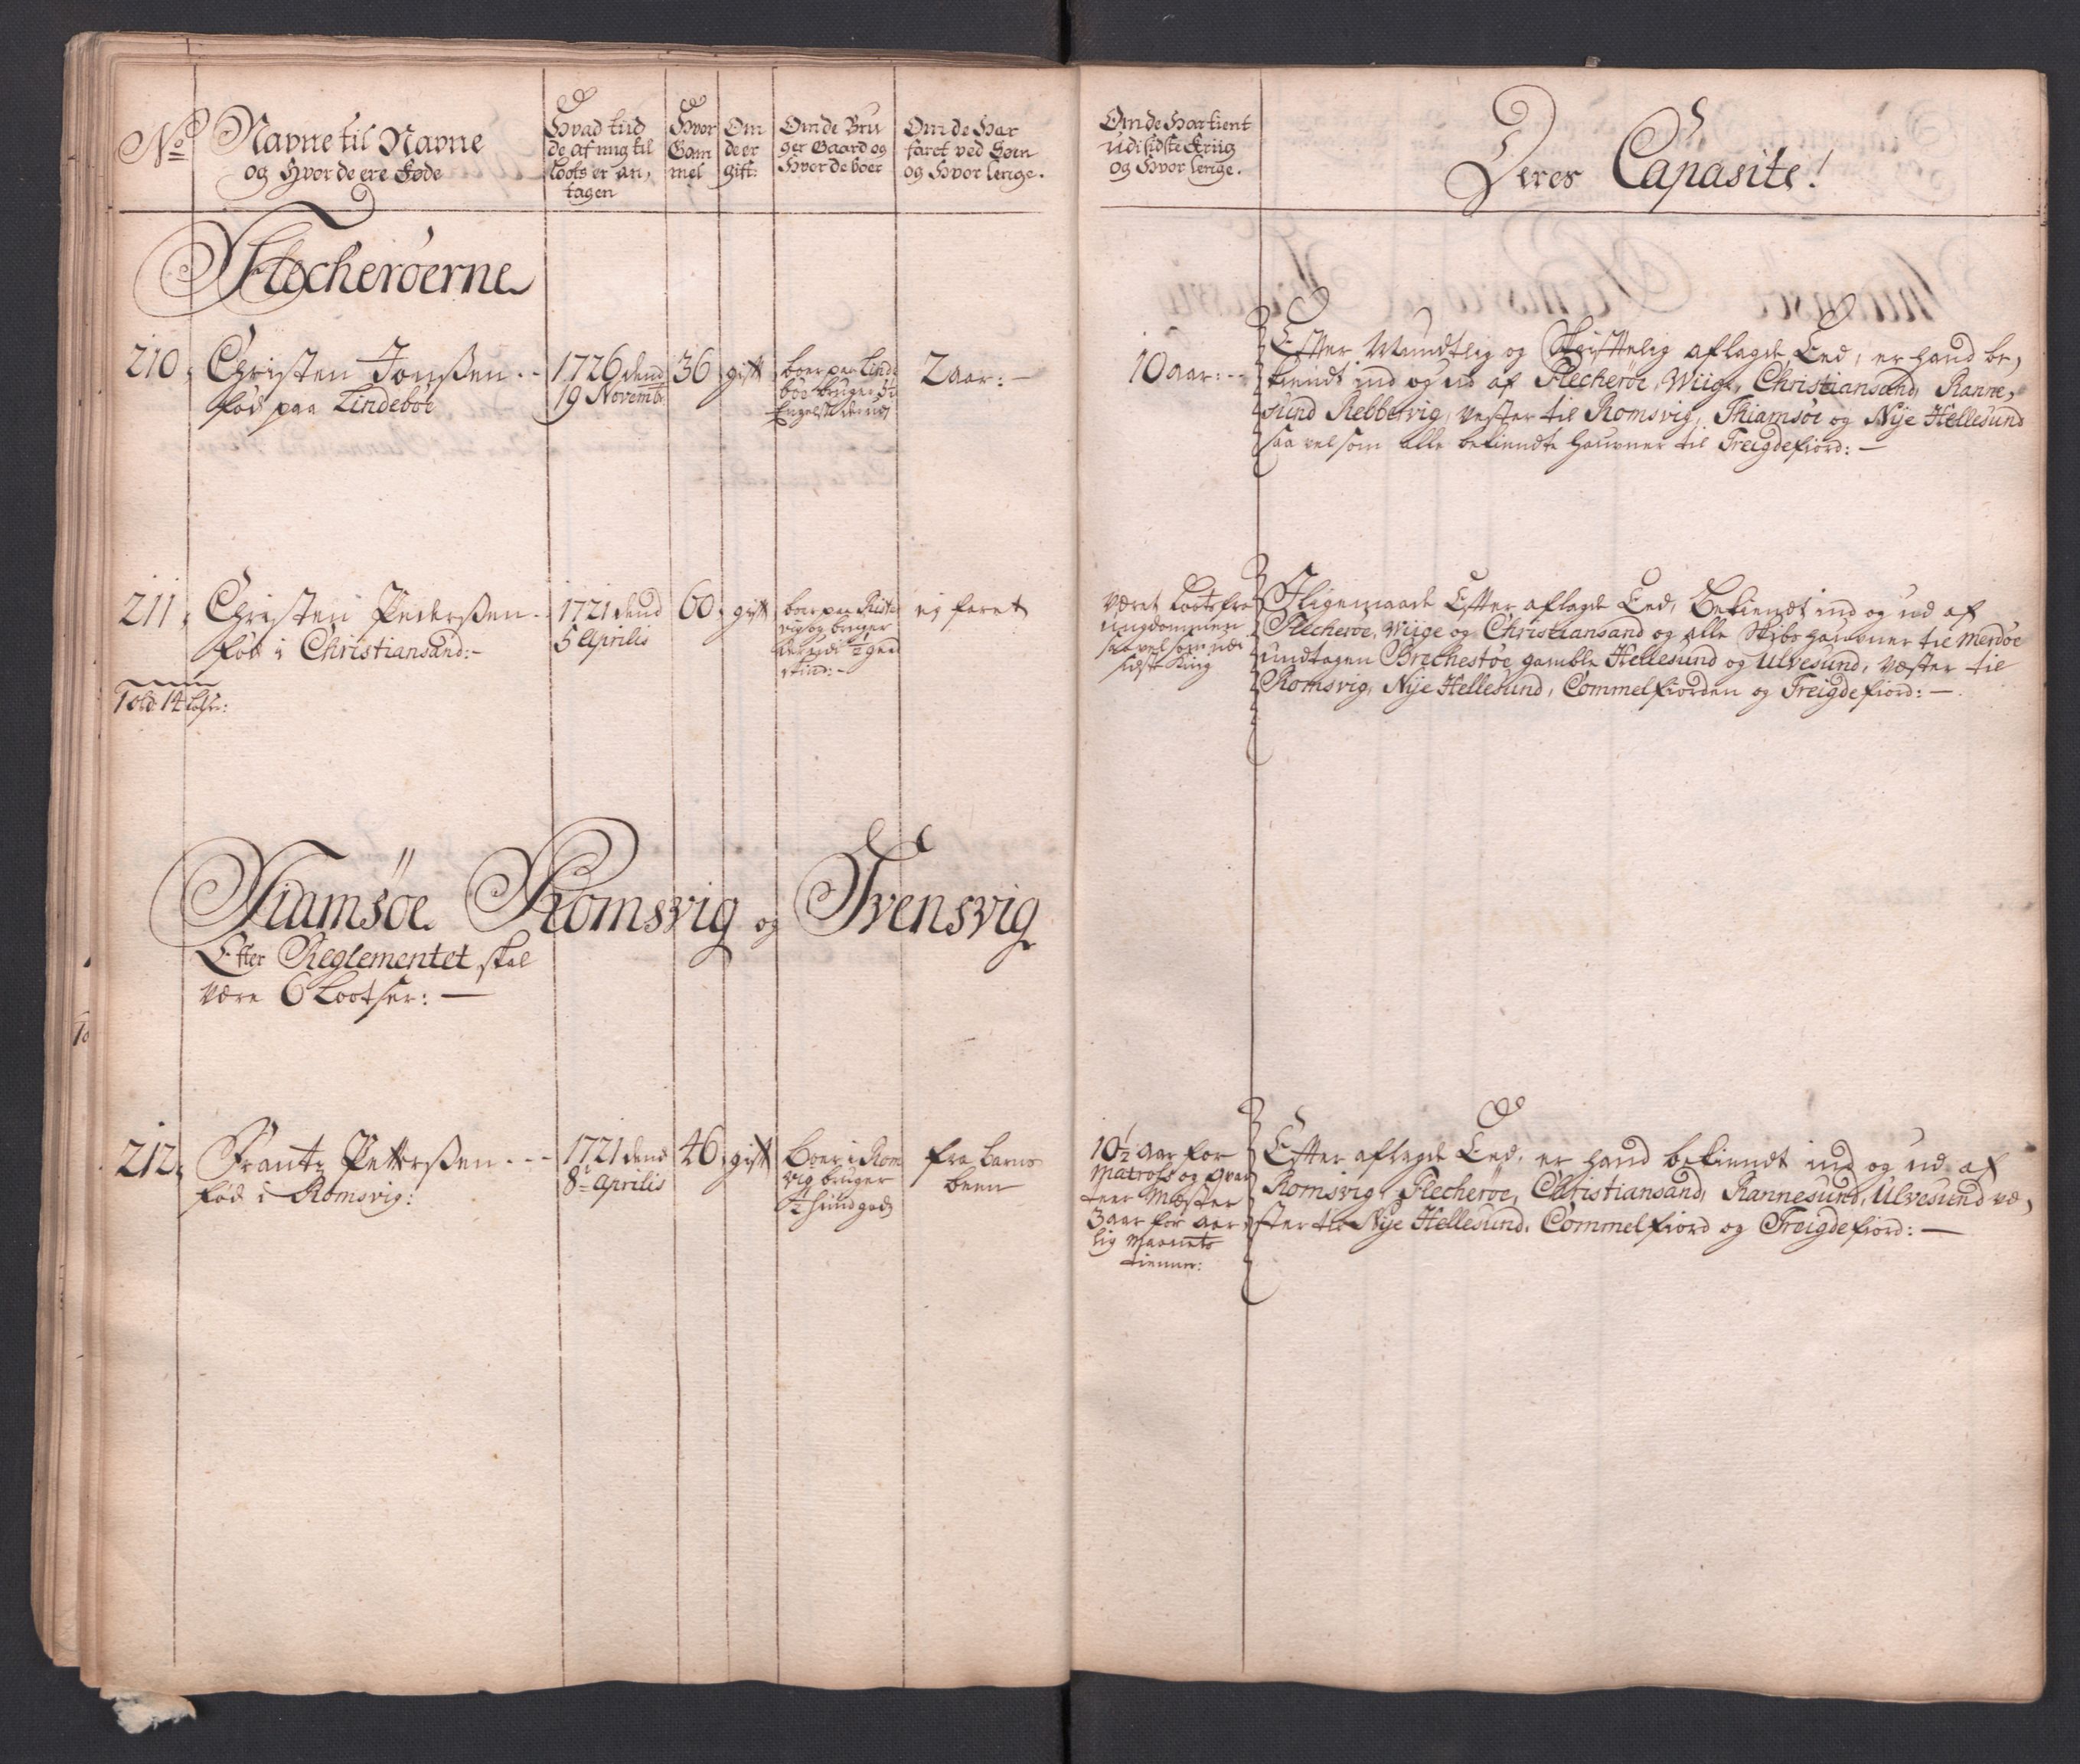 No
Navne til Navne
og Hvor de ere Føde
Hvad tiid
de af mig til
Loots er an,
tagen
Hvor
Gam
mel
Om
de er
gift:
Om de Bru
ger Gaard og
Hvor de boer
Om de Har
faret ved Søen
og Hvor lenge.
Om de Har tient
udi sidste Kriig
og Hvor lenge.
Deres Capasite!
Flecherøerne
210,
Christen Jonßen
fød paa Lindeboe
1726 dend
19 Novemb:
36
gift
boer paa Linde
boe bruger
2 aar: —
10 aar:
Efter Mundtlig og Skriftelig aflagde Eed, er hand be,
kiendt ind og ud af Flecherøe, Wiige, Christiansand, Ranne,
sund Rebbervig, vester til Romsvig, Thiamsøe og Nÿe Hellesund
saa vel som alle bekiendte Haufner til Treigdefiord: —
211,
Christen Pederßen
fød i Christiansand:-
1721 dend
5 Aprilis
60,
gift
boer paa
vig og bruger
ej faret
Været Loots fra
ungdommen
saa vel som udi
sidste Krig
Iligemaade Efter aflagde Eed, Bekiendt ind og ud af
Flecherøe, Wiige og Christiansand og alle Skibs Haufner til Merdøe
undtagen Brechestøe, gamble Hellesund og Ulvesund, Væster til
Romsvig, Nÿe Hellesund, Commelfiorden og Treigdefiord: —
14
Tiamsøe Romsvig og Tvensvig
Efter Reglementet skal
være 6 Lootser: —
212,
Frantz Petterßen
fød i Romsvig:
1721 dend
8 Aprilis
46,
gift
Boer i Rom
vig bruger
½ hundgods
fra barns
been
10½ aar for
Matrohs og Qvar
teer Mester
3 aar for aar
lig Maanets
tienner:
Efter aflagde Eed, er hand bekiendt ind og ud af
Romsvig, Flecherøe, Christiansand, Rannesund, Ulvesund væ,
ster til Nÿe Hellesund, Commelfiord og Treigdefiord: —